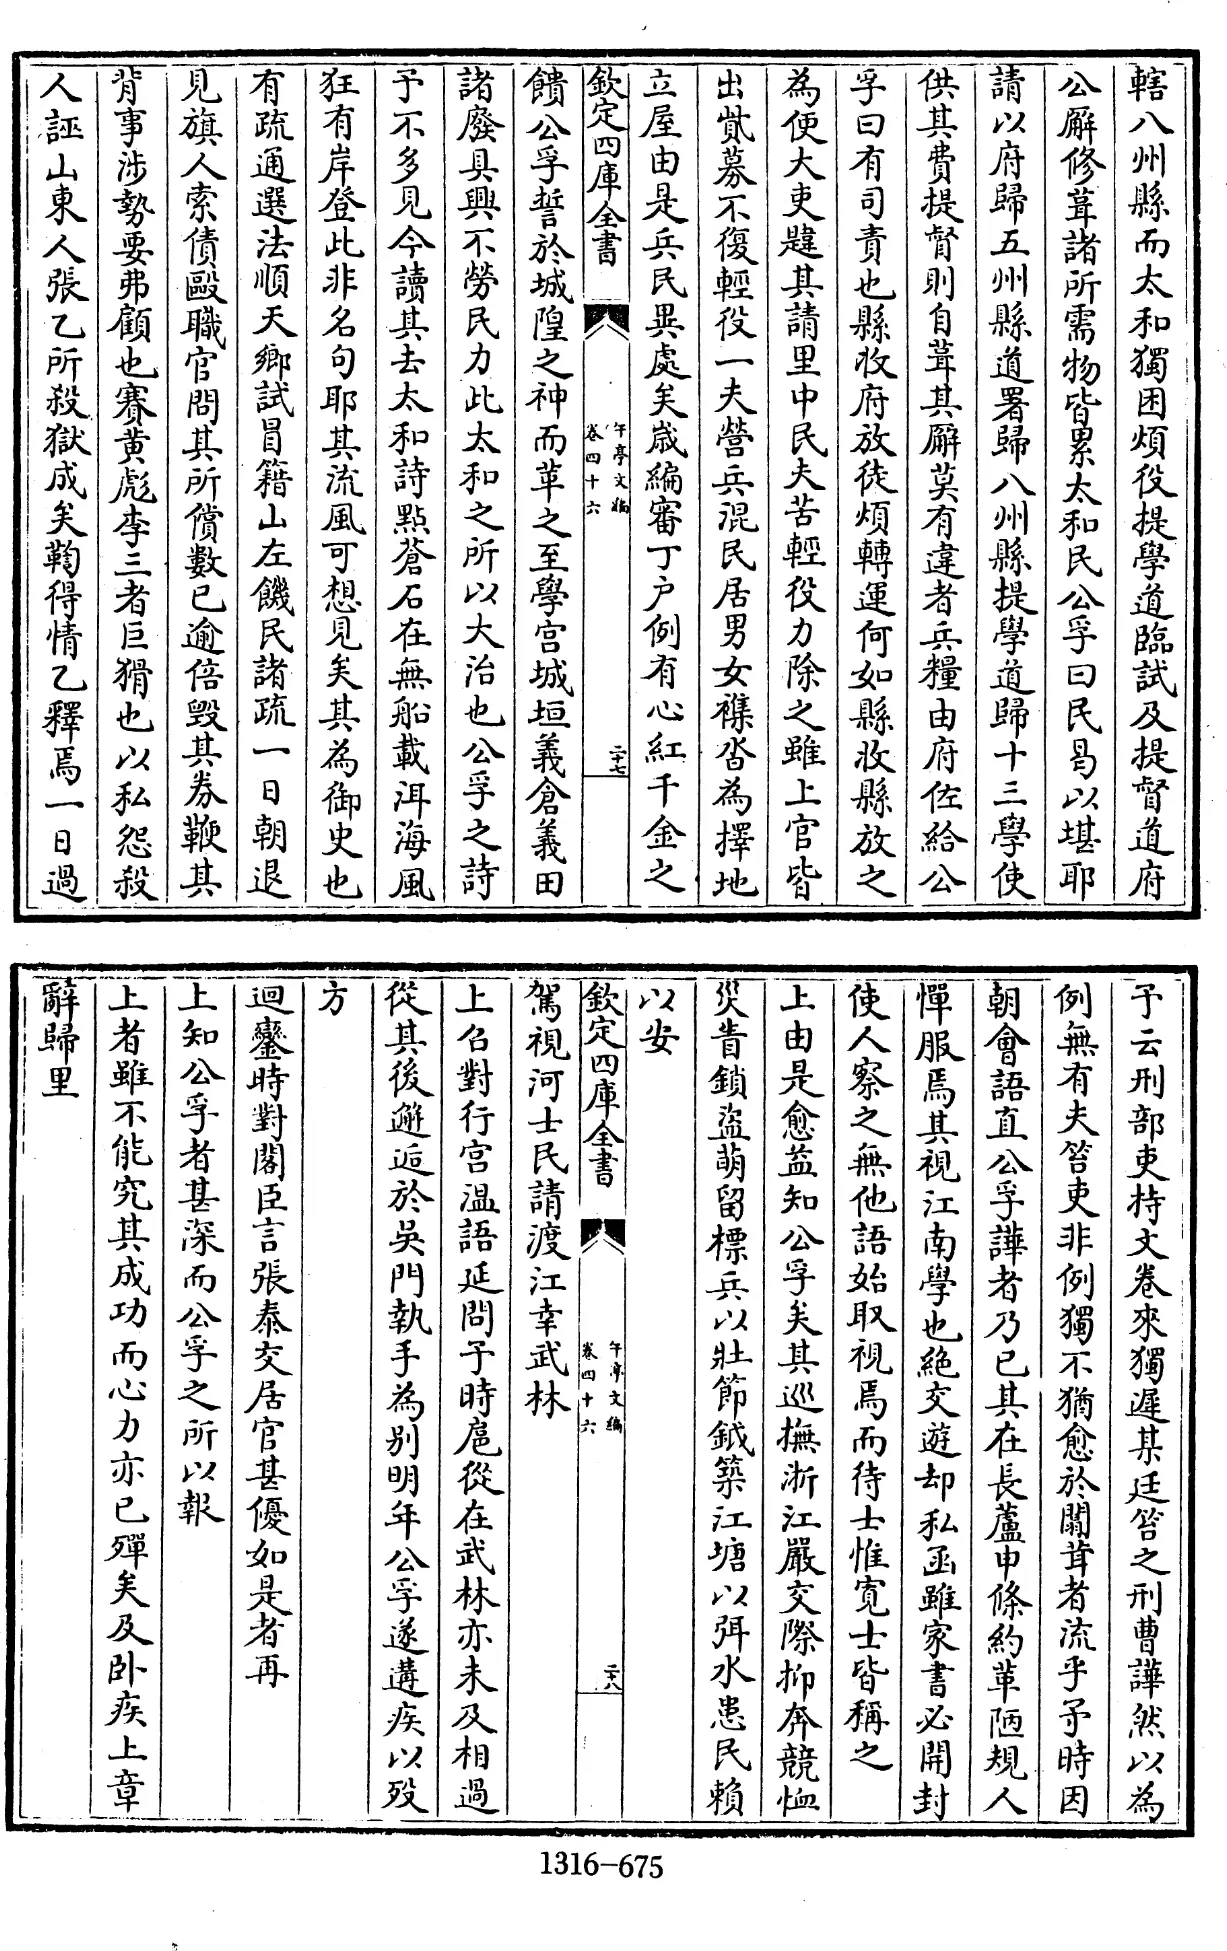 轄八州縣而太和獨困煩役提學道臨試及提督道府
公廨修葺諸所需物皆累太和民公孚曰民曷以堪耶
請以府歸五州縣道署歸八州縣提學道歸十三學使
供其費提督則自葺其廨莫有違者兵糧由府佐給公
孚曰有司責也縣收府放徒煩轉運何如縣收縣放之
為便大吏韙其請里中民夫苦輕役力除之雖上官皆
出貲募不復輕役一夫營兵混民居男女襍沓為擇地
立屋由是兵民異處矣歲編審丁户例有心紅千金之
欽定四庫全書
午亭文編
卷四十六
二十七
饋公孚誓於城隍之神而革之至學宫城垣義倉義田
諸廢具興不勞民力此太和之所以大治也公孚之詩
予不多見今讀其去太和詩點蒼石在無船載洱海風
狂有岸登此非名句耶其流風可想見矣其為御史也
有疏通選法順天鄉試冒籍山左饑民諸疏一日朝退
見旗人索債毆職官問其所償數已逾倍毀其券鞭其
背事涉勢要弗顧也賽黃彪李三者巨猾也以私怨殺
人誣山東人張乙所殺獄成矣鞫得情乙釋焉一日過
予云刑部吏持文卷來獨遲某廷笞之刑曹譁然以為
例無有夫笞吏非例獨不猶愈於闒茸者流乎予時因
朝會語直公孚譁者乃已其在長蘆申條約革陋規人
憚服焉其視江南學也絶交遊却私函雖家書必開封
使人察之無他語始取視焉而待士惟寛士皆稱之
上由是愈益知公孚矣其巡撫浙江嚴交際抑奔競恤
災眚鎖盜萌留標兵以壯節鉞築江塘以弭水患民賴
以安
欽定四庫全書
午亭文編
卷四十六
二十八
駕視河士民請渡江幸武林
上召對行宫温語延問予時扈從在武林亦未及相過
從其後邂逅於吳門執手為别明年公孚遂遘疾以殁
方
迴鑾時對閣臣言張泰交居官甚優如是者再
上知公孚者甚深而公孚之所以報
上者雖不能究其成功而心力亦已殫矣及卧疾上章
辭歸里
1316-675